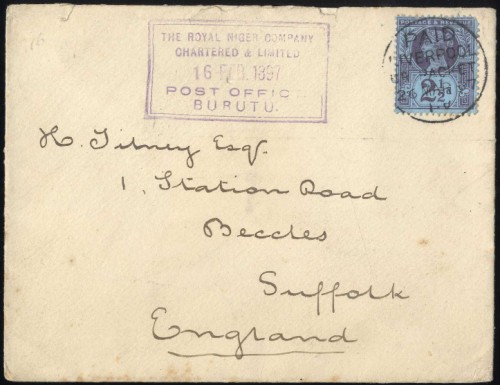 16
THE ROYAL NIGER COMPANY
CHARTERED & LIMITED
16 FEB. 1897
POST OFFIC
BURUTU.
POSTAGE & REVENUE
PAID
LIVERPOOL
PACKET
2½d
H. Titney Esqr.
1, Station Road
Beccles
Suffolk
England